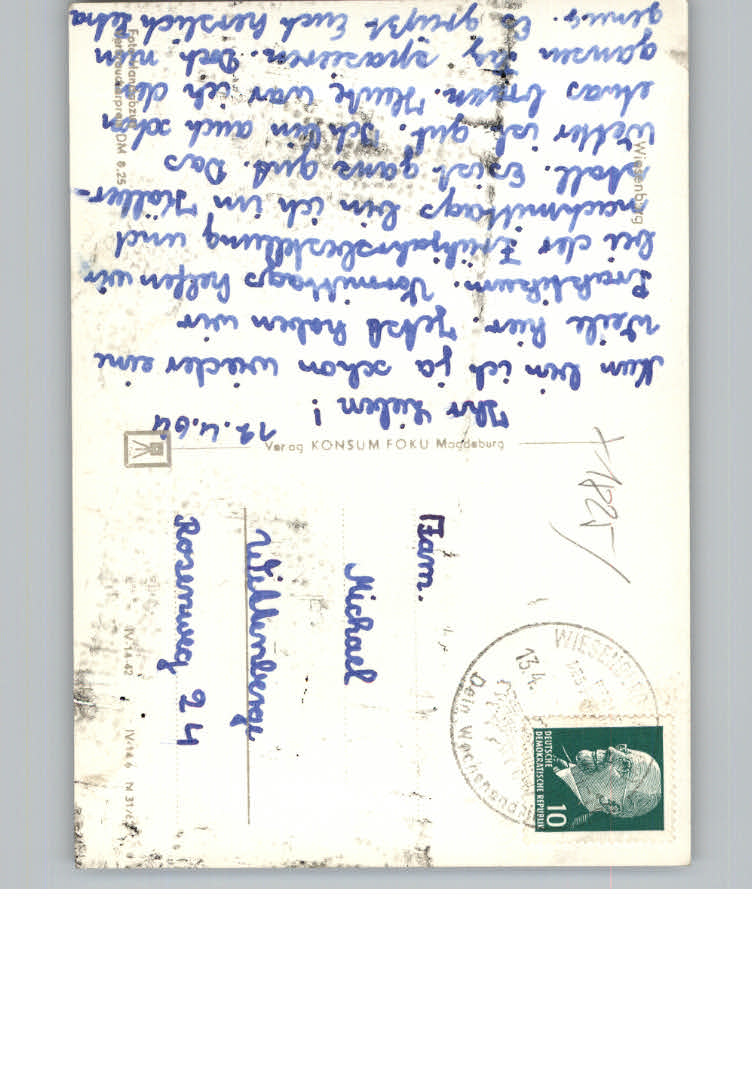 12.4.64
Ihr Lieben!
Nun bin ich ja schon wieder eine
Weile hier. Jetzt haben wir
Praktikum. Vormittags helfen wir
bei der Frühjahrsbestellung und
nachmittags bin ich im Kälber-
stall. Es ist ganz gut. Das
Wetter ist gut. Ich bin auch schon
etwas braun. Heute war ich den
ganzen Tag spazieren. Doch nun
genug. Es grüßt Euch herzlich
Wiesenburg
DM 0.25
Verlag KONSUM FOKU Magdeburg
Fam.
Michael
Wittenberge
Rosenweg 24
+1825/
WIESENBURG
13.4.
Dein Wochenend
DEUTSCHE
DEMOKRATISCHE REPUBLIK
10
IV-14-42